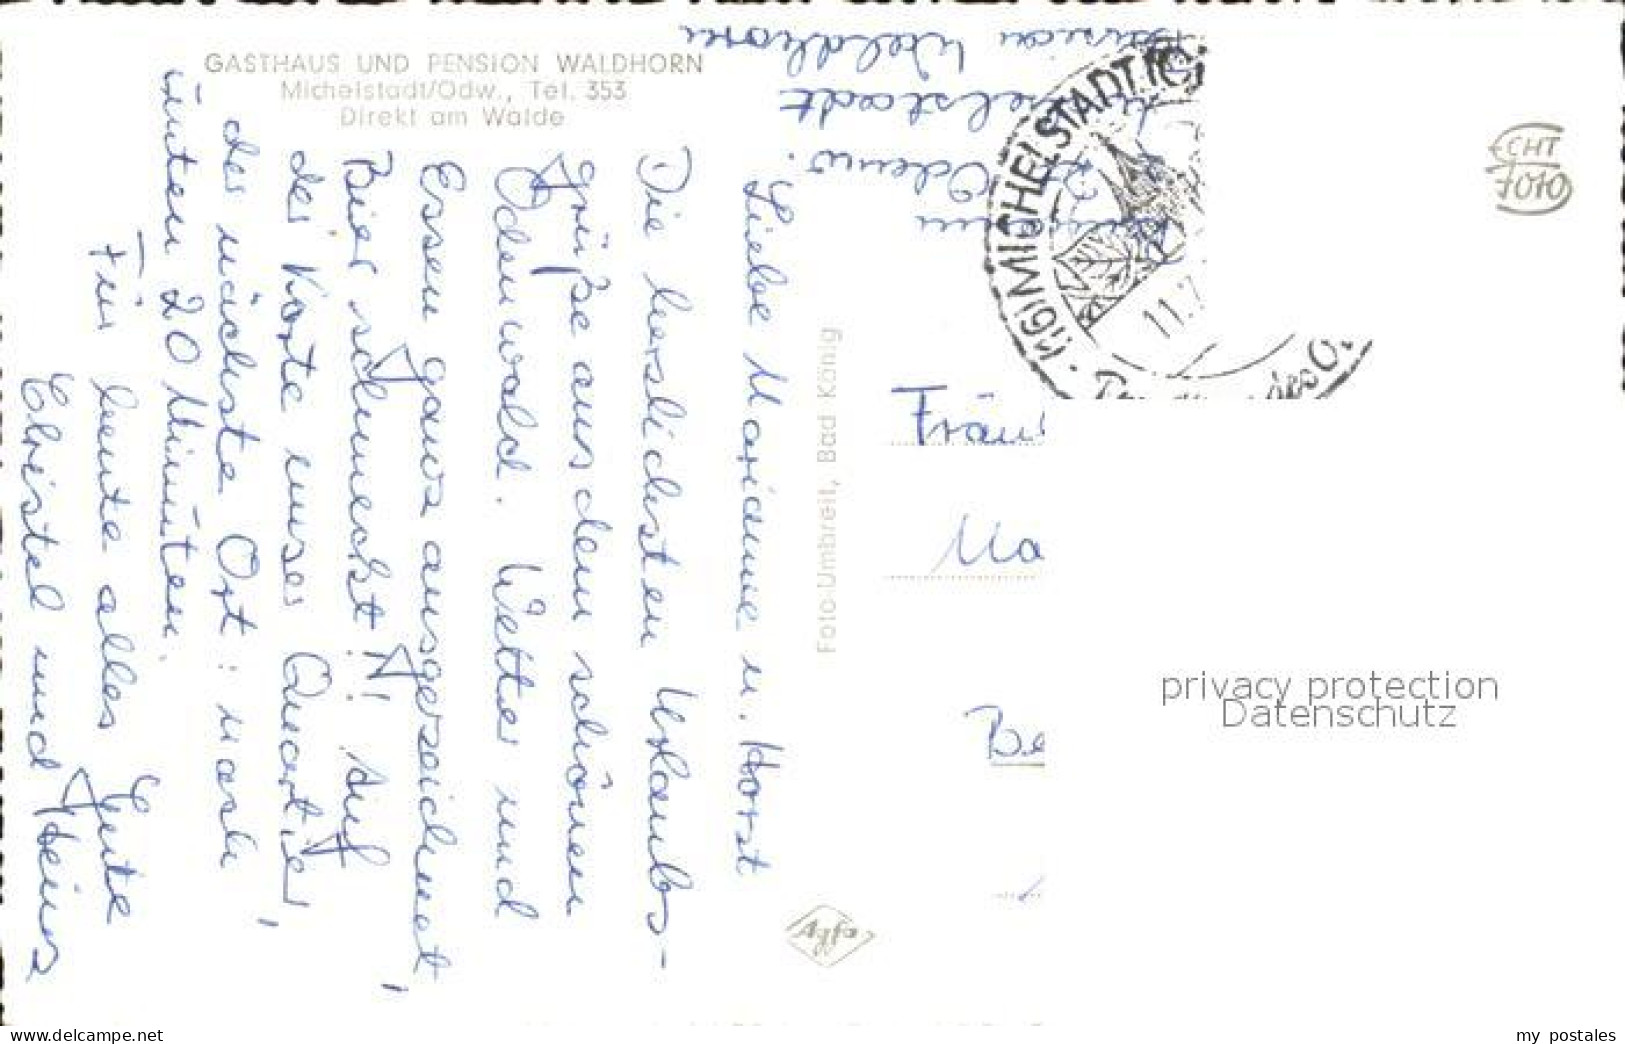 GASTHAUS UND PENSION WALDHORN
Michelstadt/Odw., Tel. 353
Direkt am Walde
Pension Waldhorn
Michelstadt
Odenw.
Liebe Marianne u. Horst
Die herzlichsten Urlaubs-
grüße aus dem schönen
Odenwald. Wetter und
Essen ganz ausgezeichnet,
Bier schmeckt!! Auf
der Karte unser Quartier,
der nächste Ort: nach
unten 20 Minuten.
Für heute alles Gute
Christel und Heinz
Foto-Umbreit, Bad König
Agfa
(16) MICHELSTADT (O
11.7
des O
ECHT
FOTO
Fräu
Ma
Be
privacy protection
Datenschutz
www.ansichtskarten-center.de
my postales